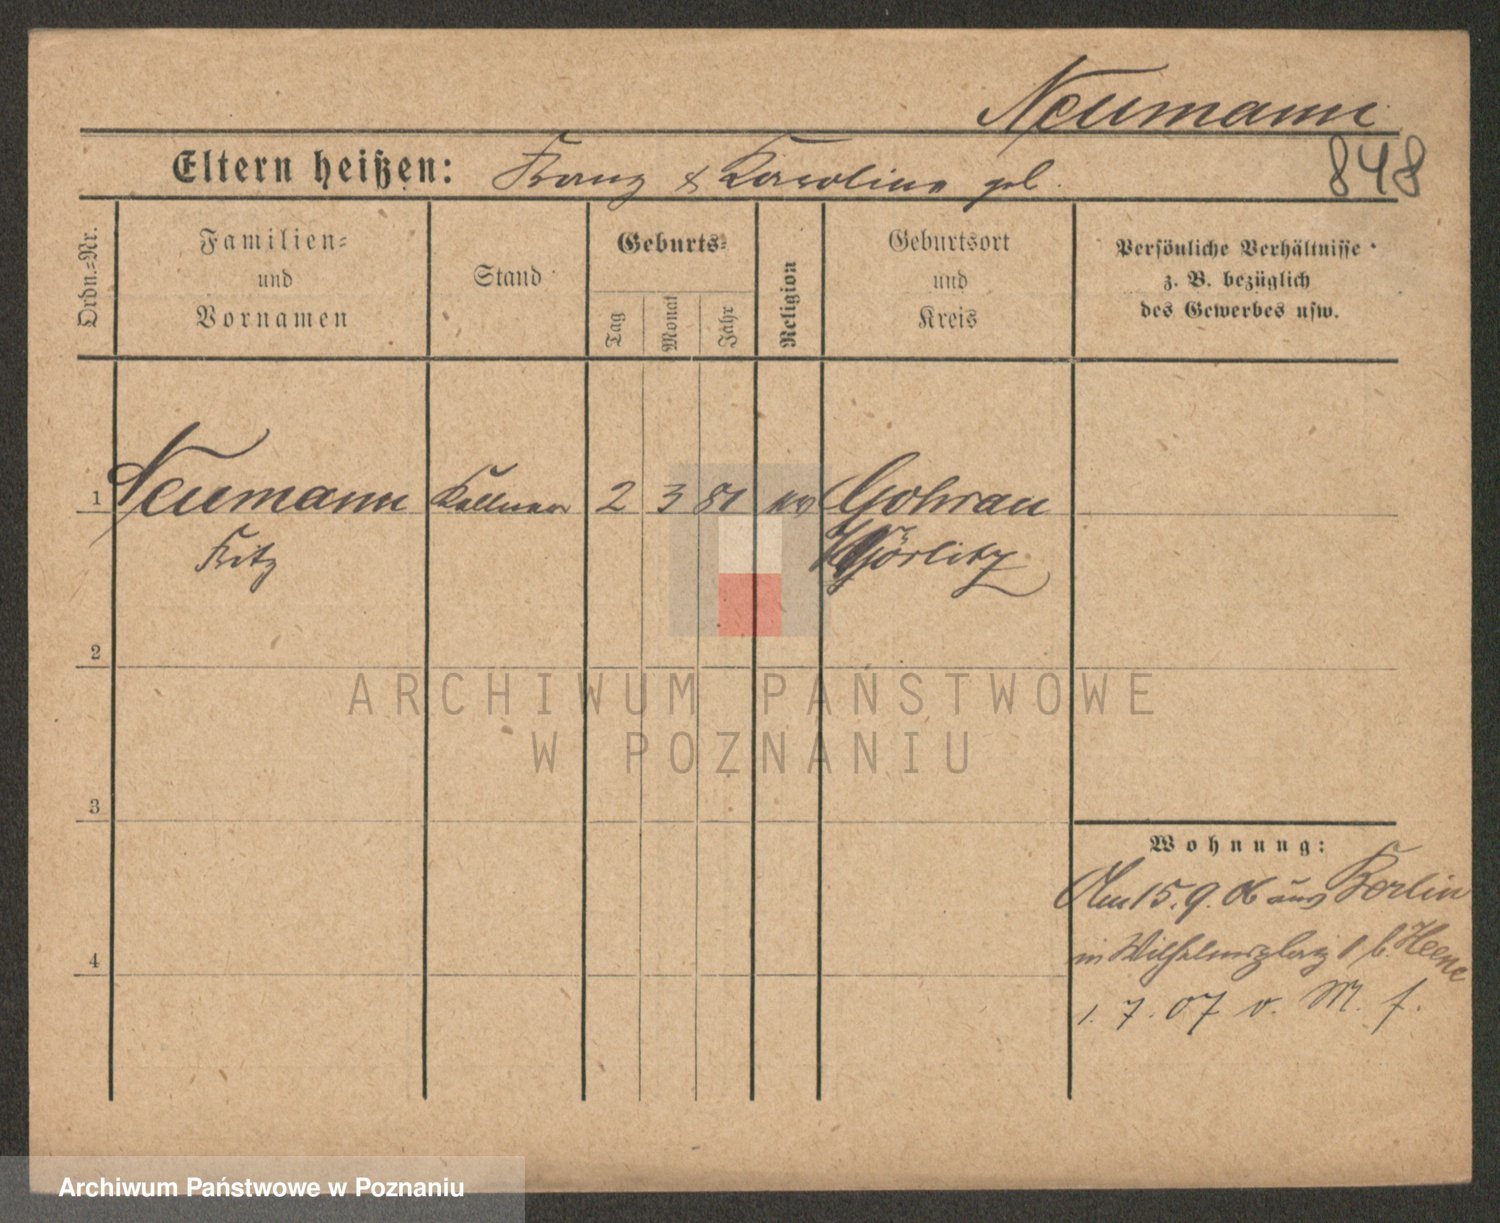 Neumann
848
Eltern heißen: Franz & Karoline gel.
Ordn.=Nr.
Familien=
und
Vornamen
Stand
Geburts=
Tag
Monat
Jahr
Religion
Geburtsort
und
Kreis
Persönliche Verhältnisse
z. B. bezüglich
des Gewerbes usw.
1 Neumann Kellner 2 3 81 Gohrau
Fritz Görlitz
2
ARCHIWUM PAŃSTWOWE
W POZNANIU
3
Wohnung:
Am 15.9.06 aus Berlin
in Wilhelmsplatz 1 b. Heene
4
1. 7. 07 v. M. f.
Archiwum Państwowe w Poznaniu